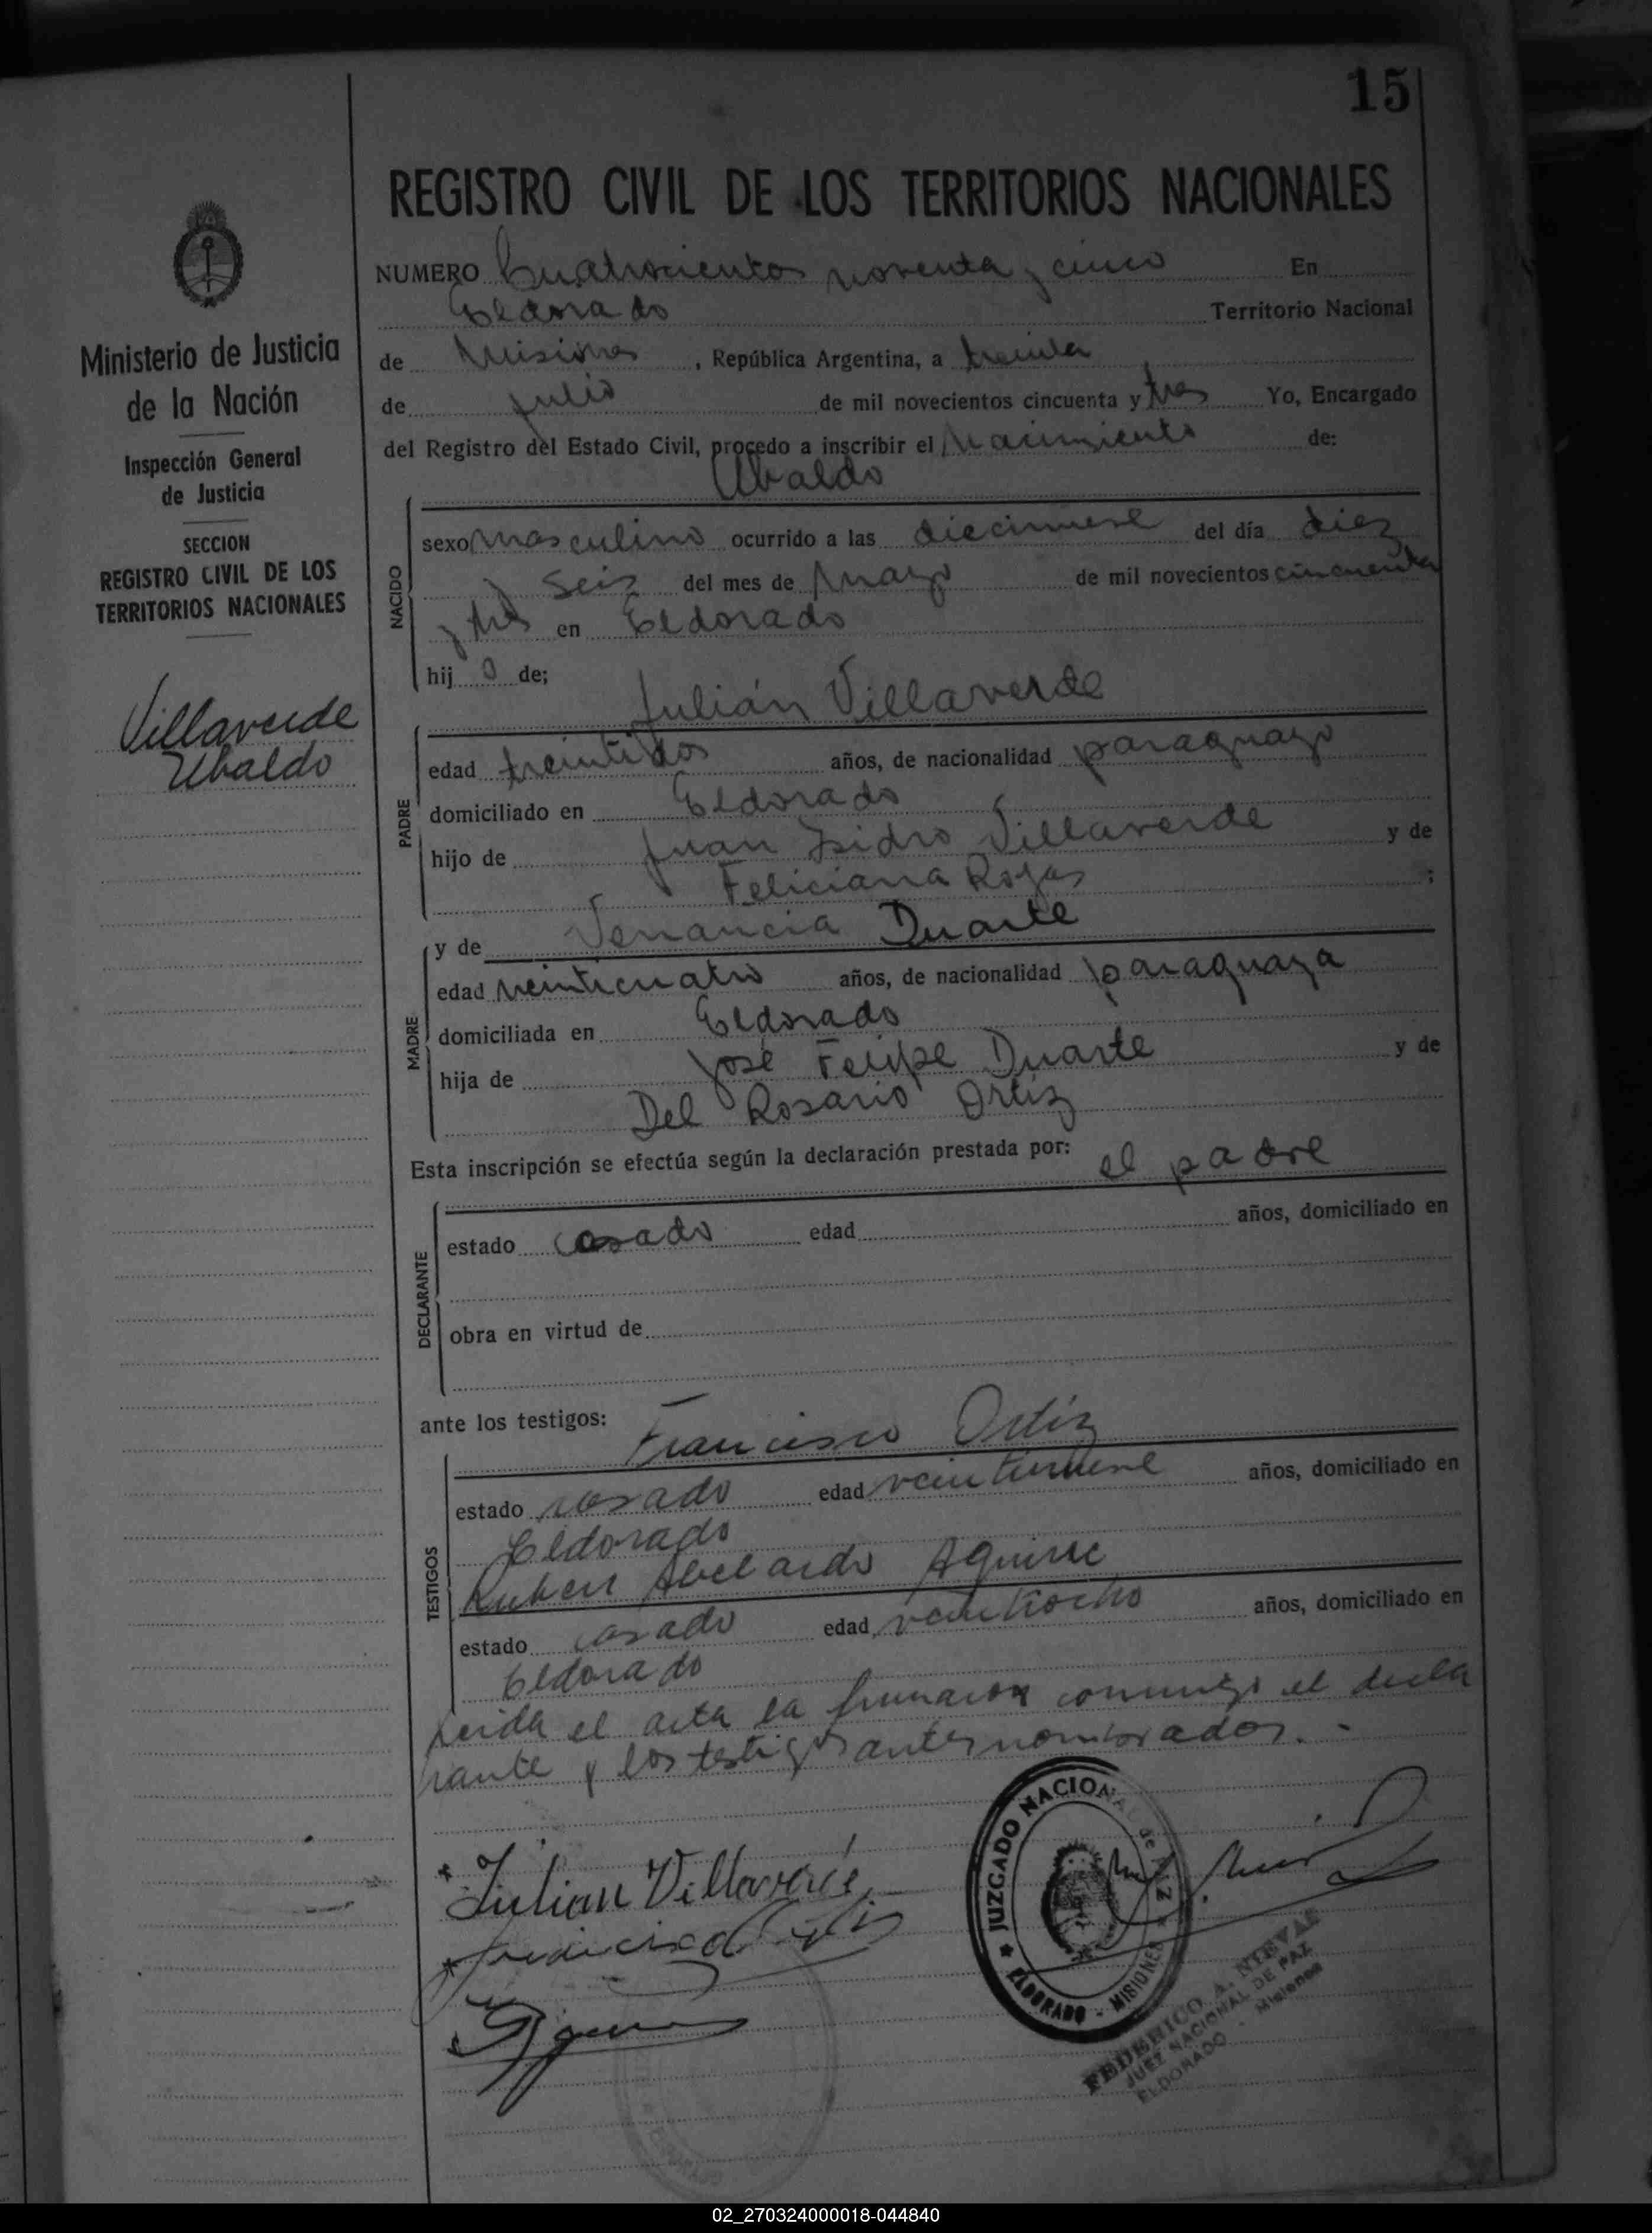 15
REGISTRO CIVIL DE LOS TERRITORIOS NACIONALES
Ministerio de Justicia
de la Nación
Inspección General
de Justicia
SECCION
REGISTRO CIVIL DE LOS
TERRITORIOS NACIONALES
Villaverde
Ubaldo
NUMERO Cuatrocientos noventa y cinco En
Eldorado Territorio Nacional
de Misiones, República Argentina, a treinta
de julio de mil novecientos cincuenta y tres Yo, Encargado
del Registro del Estado Civil, procedo a inscribir el Nacimiento de:
Ubaldo
NACIDO
sexo masculino ocurrido a las diecinueve del día diez
y seis del mes de mayo de mil novecientos cincuenta
y tres en Eldorado
hij o de;
Julián Villaverde
PADRE
edad treintidos años, de nacionalidad paraguayo
domiciliado en Eldorado
hijo de Juan Isidro Villaverde y de
Feliciana Rojas ;
MADRE
y de Venancia Duarte
edad veinticuatro años, de nacionalidad paraguaya
domiciliada en Eldorado
hija de José Felipe Duarte y de
Del Rosario Ortiz
Esta inscripción se efectúa según la declaración prestada por: el padre
DECLARANTE
estado casado edad años, domiciliado en
obra en virtud de
ante los testigos: Francisco Ortiz
TESTIGOS
estado casado edad veintinueve años, domiciliado en
Eldorado
Ruben Abelardo Aguirre
estado casado edad veintiocho años, domiciliado en
Eldorado
Leida el acta la firmaron conmigo el decla
rante y los testigos antes nombrados.-
Julian Villaverde
JUZGADO NACIONAL de PAZ
ELDORADO - MISIONES
FEDERICO A. NIEVAS
JUEZ NACIONAL DE PAZ
ELDORADO - Misiones
02_270324000018-044840